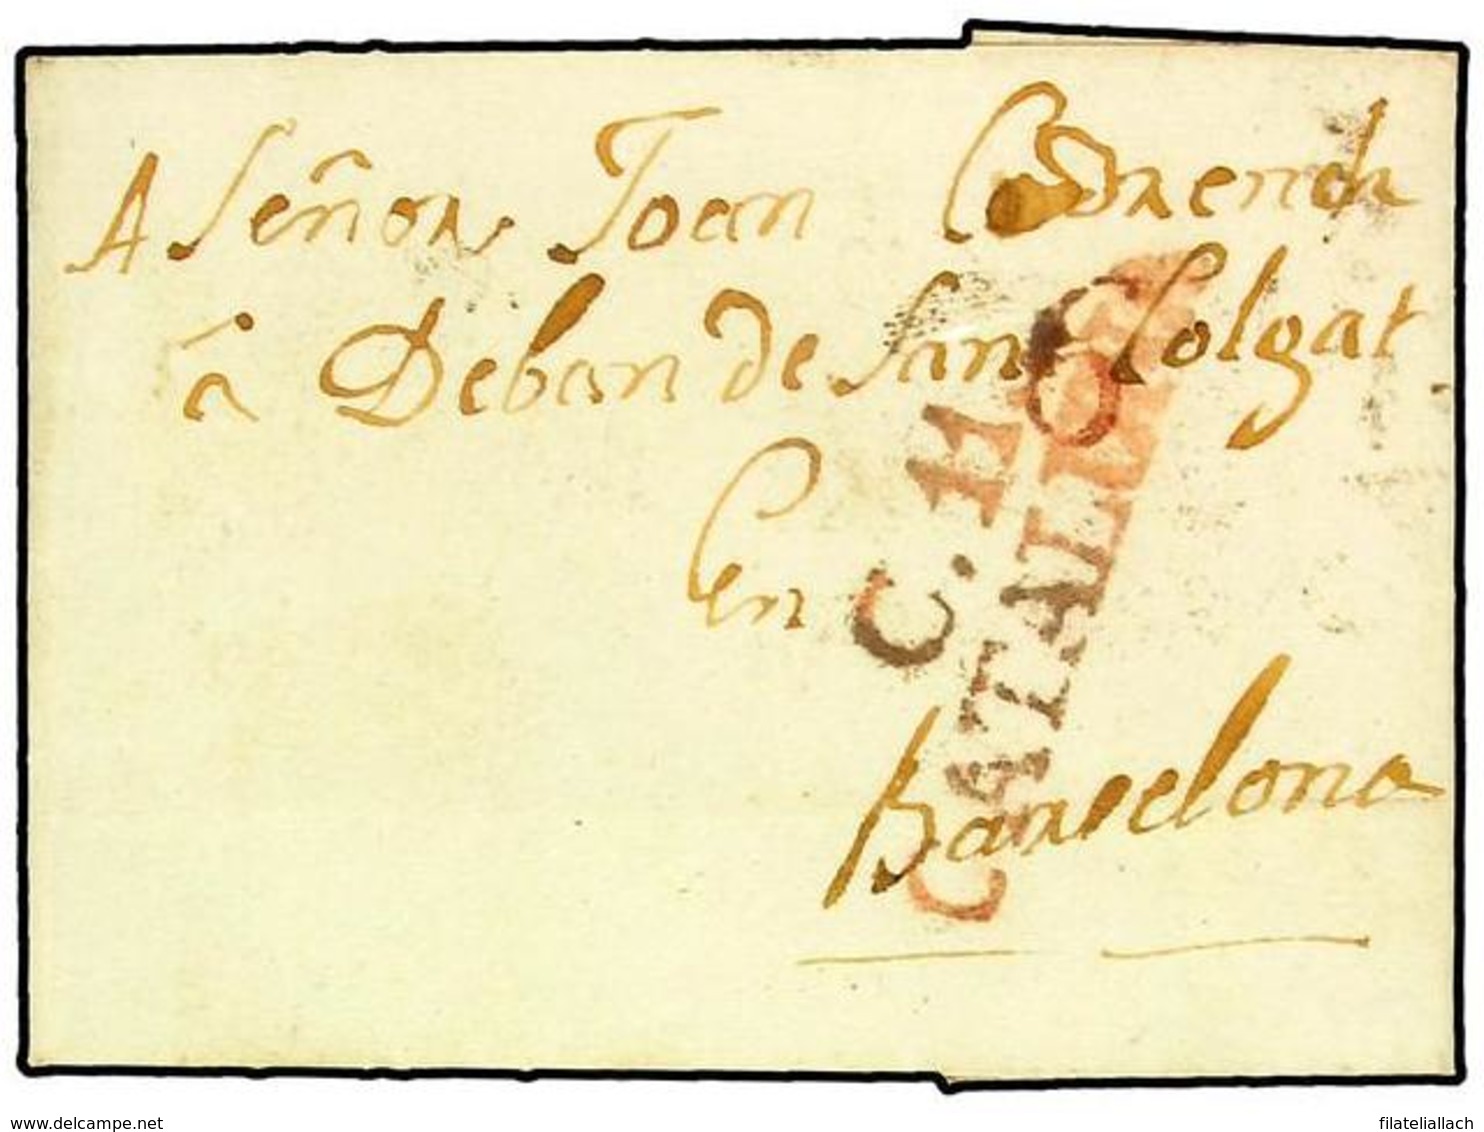 A Señor Joan Codrench
â Deban de San Colgat
en
Barcelona
C. 11
CATALUÑA
delcampe.net
filateliallach